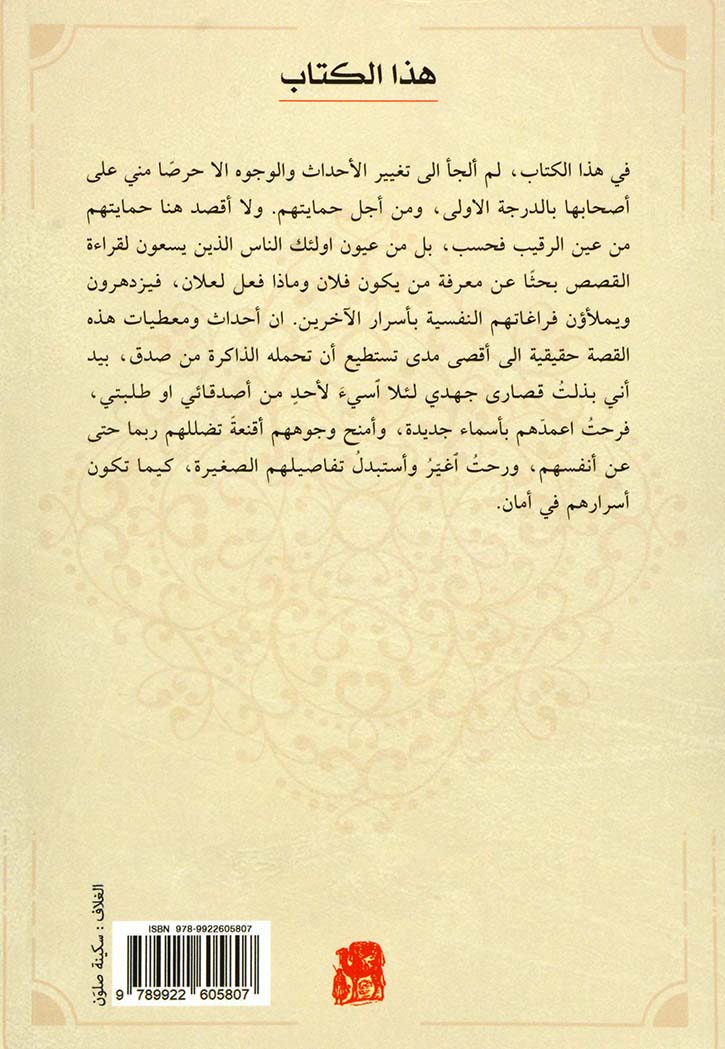 هذا الكتاب
في هذا الكتاب، لم ألجأ الى تغيير الأحداث والوجوه الا حرصًا مني على
أصحابها بالدرجة الاولى، ومن أجل حمايتهم. ولا أقصد هنا حمايتهم
من عين الرقيب فحسب، بل من عيون اولئك الناس الذين يسعون لقراءة
القصص بحثًا عن معرفة من يكون فلان وماذا فعل لعلان، فيزدهرون
ويملأؤن فراغاتهم النفسية بأسرار الآخرين. ان أحداث ومعطيات هذه
القصة حقيقية الى أقصى مدى تستطيع أن تحمله الذاكرة من صدق، بيد
أني بذلتُ قصارى جهدي لئلا اُسيءَ لأحدٍ من أصدقائي او طلبتي،
فرحتُ اعمدَهم بأسماء جديدة، وأمنح وجوههم أقنعةً تضللهم ربما حتى
عن أنفسهم، ورحتُ اُغيّرُ وأستبدلُ تفاصيلهم الصغيرة، كيما تكون
أسرارهم في أمان.
الغلاف : سكينة صلوَن
ISBN 978-9922605807
9 789922 605807